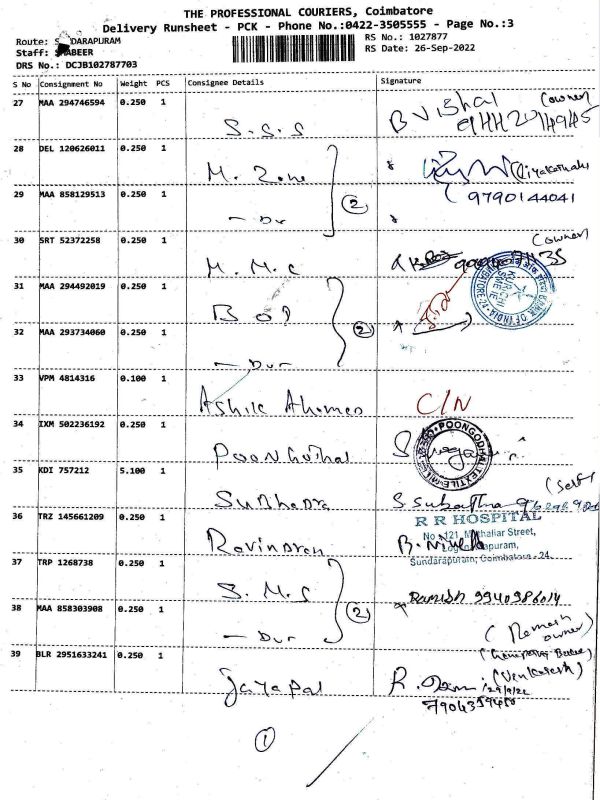 THE PROFESSIONAL COURIERS, Coimbatore
Delivery Runsheet - PCK - Phone No.:0422-3505555 - Page No.:3
Route: DARAPURAM
RS No.: 1027877
Staff: BEER
RS Date: 26-Sep-2022
DRS No.: DCJB102787703
S No Consignment No Weight PCS Consignee Details Signature
27 MAA 294746594 0.250 1 S.S.S B Vishal (owner)
28 DEL 120626011 0.250 1 M. Zone 2
29 MAA 858129513 0.250 1 - Du 9790144041
30 SRT 52372258 0.250 1 M. M. C (owner)
31 MAA 294492019 0.250 1 BOI 2
BANK OF INDIA
32 MAA 293734060 0.250 1 - Dur
33 VPM 4814316 0.100 1 Ashik Ahamed C/N
34 IXM 502236192 0.250 1 Poongothai
POONGODHAI TEXTILE
35 KDI 757212 5.100 1 Sundhara S. (Self)
36 TRZ 145661209 0.250 1 Ravindran
R R HOSPITAL
No 121, Mathaliar Street,
Sundarapuram, Coimbatore - 24.
37 TRP 1268738 0.250 1 S. M. S 2 Ramesh 9940986014
38 MAA 858303908 0.250 1 - Dur
(Ramesh owner)
39 BLR 2951633241 0.250 1 Jayapal R.
(Venkatesh)
29/9/22
7904359450
1